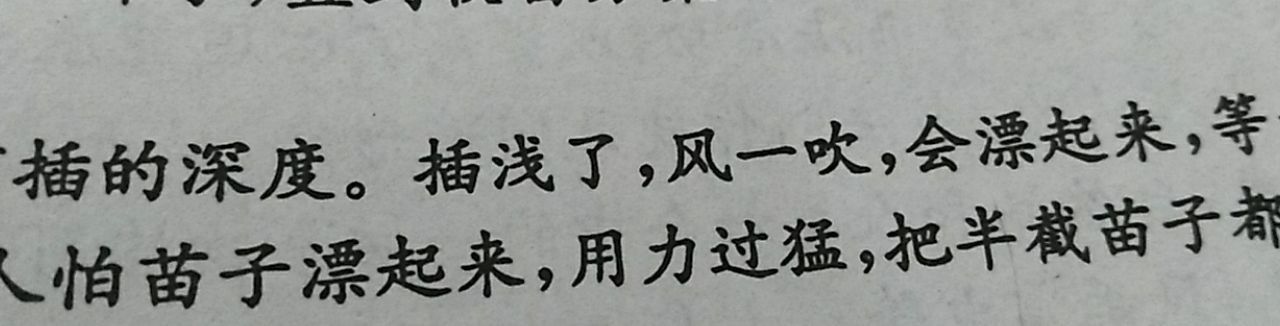 插的深度。插浅了,风一吹,会漂起来,等
人怕苗子漂起来,用力过猛,把半截苗子都